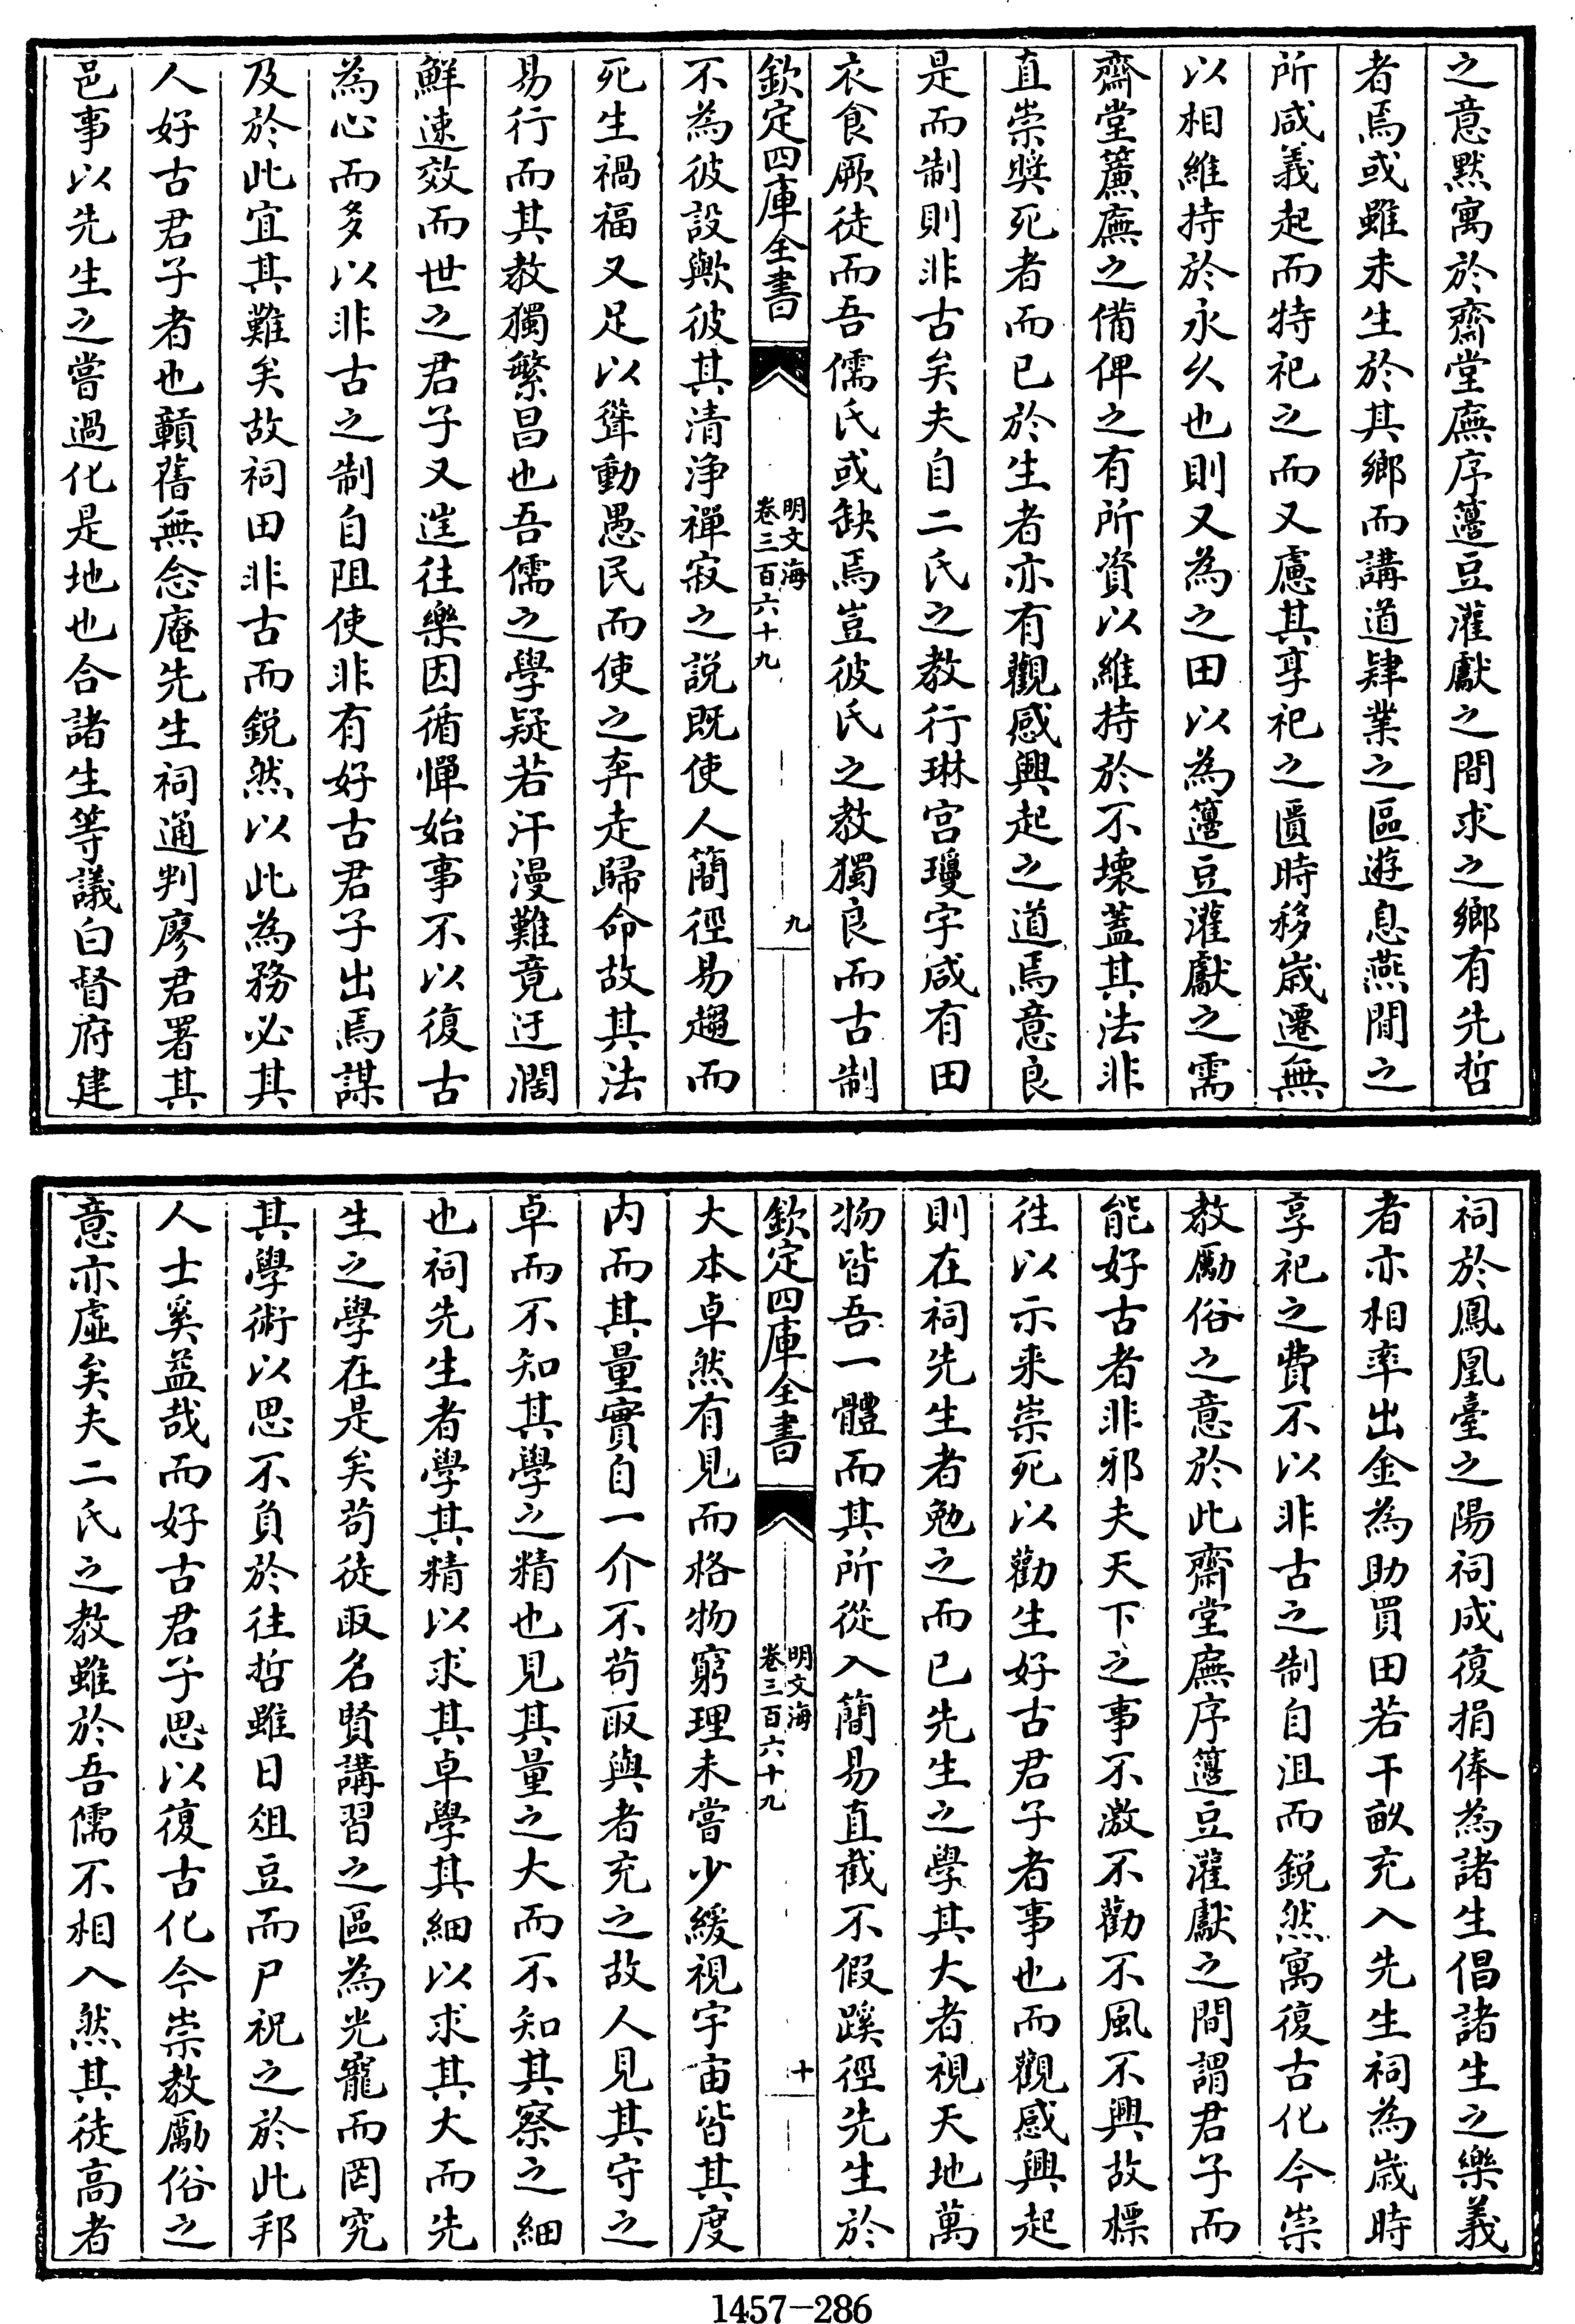 之意默寓於齋堂廡序籩豆灌獻之間求之鄉有先哲
者焉或雖未生於其鄉而講道肄業之區遊息燕閒之
所咸義起而特祀之而又慮其享祀之匱時移歲遷無
以相維持於永久也則又為之田以為籩豆灌獻之需
齋堂簾廡之備俾之有所資以維持於不壞蓋其法非
直崇奬死者而已於生者亦有觀感興起之道焉意良
是而制則非古矣夫自二氏之教行琳宫瓊宇咸有田
衣食厥徒而吾儒氏或缺焉豈彼氏之教獨良而古制
欽定四庫全書
明文海
卷三百六十九
九
不為彼設歟彼其清浄禪寂之説既使人簡徑易趨而
死生禍福又足以聳動愚民而使之奔走歸命故其法
易行而其教獨繁昌也吾儒之學疑若汗漫難竟迂濶
鮮速效而世之君子又遑往樂因循憚始事不以復古
為心而多以非古之制自阻使非有好古君子出焉謀
及於此宜其難矣故祠田非古而鋭然以此為務必其
人好古君子者也顛舊無念庵先生祠通判廖君署其
邑事以先生之嘗過化是地也合諸生等議白督府建
祠於鳳凰臺之陽祠成復捐俸為諸生倡諸生之樂義
者亦相率出金為助買田若干畝充入先生祠為歲時
享祀之費不以非古之制自沮而鋭然寓復古化今崇
教勵俗之意於此齋堂廡序籩豆灌獻之間謂君子而
能好古者非邪夫天下之事不激不勸不風不興故標
徃以示来崇死以勸生好古君子者事也而觀感興起
則在祠先生者勉之而已先生之學其大者視天地萬
物皆吾一體而其所從入簡易直截不假蹊徑先生於
欽定四庫全書
明文海
卷三百六十九
十
大本卓然有見而格物窮理未嘗少緩視宇宙皆其度
内而其量實自一介不苟取與者充之故人見其守之
卓而不知其學之精也見其量之大而不知其察之細
也祠先生者學其精以求其卓學其細以求其大而先
生之學在是矣苟徒取名賢講習之區為光寵而罔究
其學術以思不負於往哲雖日俎豆而尸祝之於此邦
人士奚益哉而好古君子思以復古化今崇教勵俗之
意亦虚矣夫二氏之教雖於吾儒不相入然其徒高者
1457-286